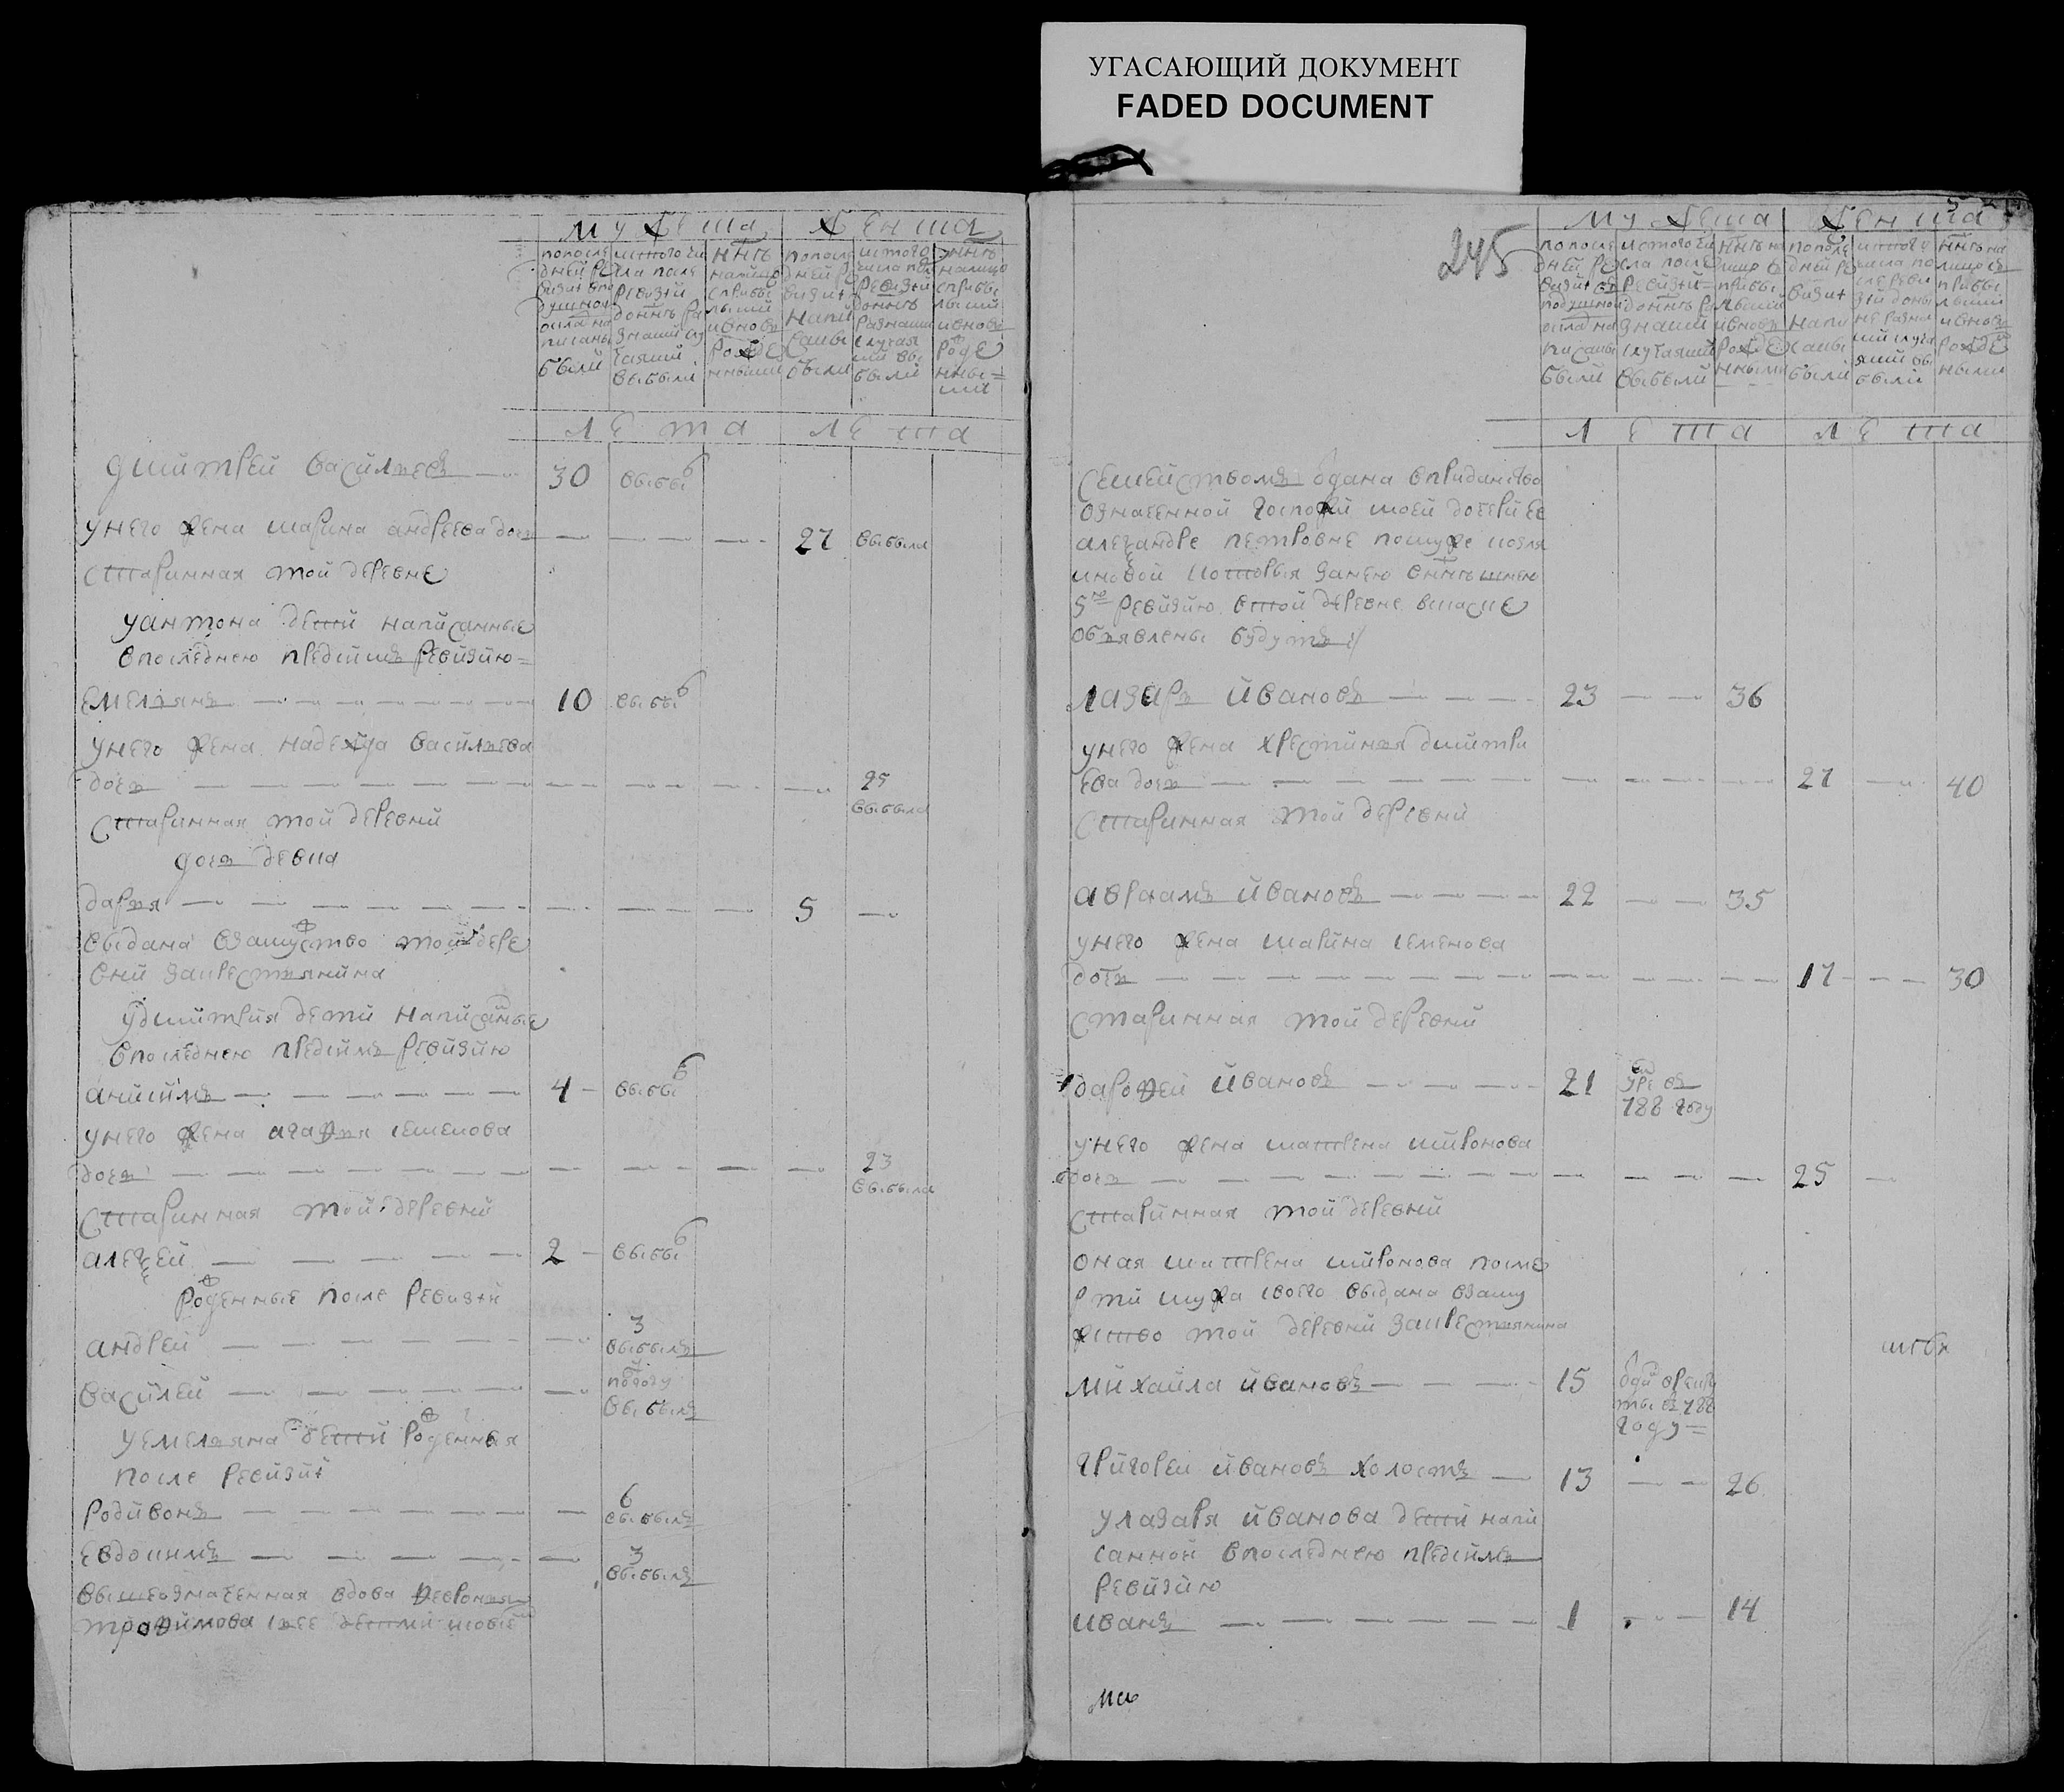 УГАСАЮЩИЙ ДОКУМЕНТ
FADED DOCUMENT
мужеска женска
попосле дней ревизии вподушной оклад написаны были
истого числа после ревизии доныне разными случаями выбыли
ныне налицо сприбылыми ивновь рожденными
попосле дней ревизии написаны были
истого числа после ревизии доныне разными случаями выбыли
ныне налицо сприбылыми ивновь рожденными
лета лета
дмитрей васильевъ — 30 выбы
унего жена марина андреева дочь — — — — 27 выбыла
старинная той деревне
уантона детей написанные
впоследнею предсимъ ревизию
емельянъ — — — — — 10 выбы
унего жена надежда васильева
дочь — — — — — 25
выбыла
старинная той деревни
дочь девка
дарья — — — — — 5 —
выдана взамужство той дере
вни закрестьянина
удмитрия дети написаные
впоследнею предсимъ ревизию
анисимъ — — — — 4 — выбы
унего жена агафья семенова
дочь — — — — — 23
выбыла
старинная той деревни
алеѯей — — — — 2 — выбы
роденные после ревизии
андрей — — — — 3
выбылъ
василей — — — — полгоду
выбылъ
уемельяна детей роденныя
после ревизии
родивонъ — — — — 6
выбылъ
евдокимъ — — — — 3
выбылъ
вышеозначенная вдова февронья
трофимова сее детми исовсе
245
мужеска женска
попосле дней ревизии въ подушной оклад написаны были
истого числа после ревизии доныне разными случаями выбыли
ныне налицо с прибылыми ивновь рожденными
пополе ревизии написаны были
истого числа после ревизии доныне разными случаями выбыли
ныне налицо сприбылыми ивновь рожденными
лета лета
семействомъ одана вприданство
означенной госпожи моей дочери ее
алеѯандре петровне помуже козля
иновой которыя занею вныне шнею
5ю ревизию втой деревне вписке
объявлены будутъ
лазарь ивановъ — — — 23 — — 36
унего жена хрестинья дмитри
ева дочь — — — — — 27 — — 40
старинная той деревни
авраамъ ивановъ — — — 22 — — 35
унего жена марина семенова
дочь — — — — — 17 — — 30
старинная той деревни
дарофей ивановъ — — — 21 умре въ
788 году
унего жена матрена миронова
дочь — — — — — 25 —
старинная той деревни
оная матрена миронова посме
рти мужа своего выдана взаму
жство той деревни закрестьянина
михайла ивановъ — — — 15 одан врекру
ты въ 788
году
григореи ивановъ холостъ — 13 — — 26
улазаря иванова детей напи
санной впоследнею предсимъ
ревизию
иванъ — — — — 1 — — 14